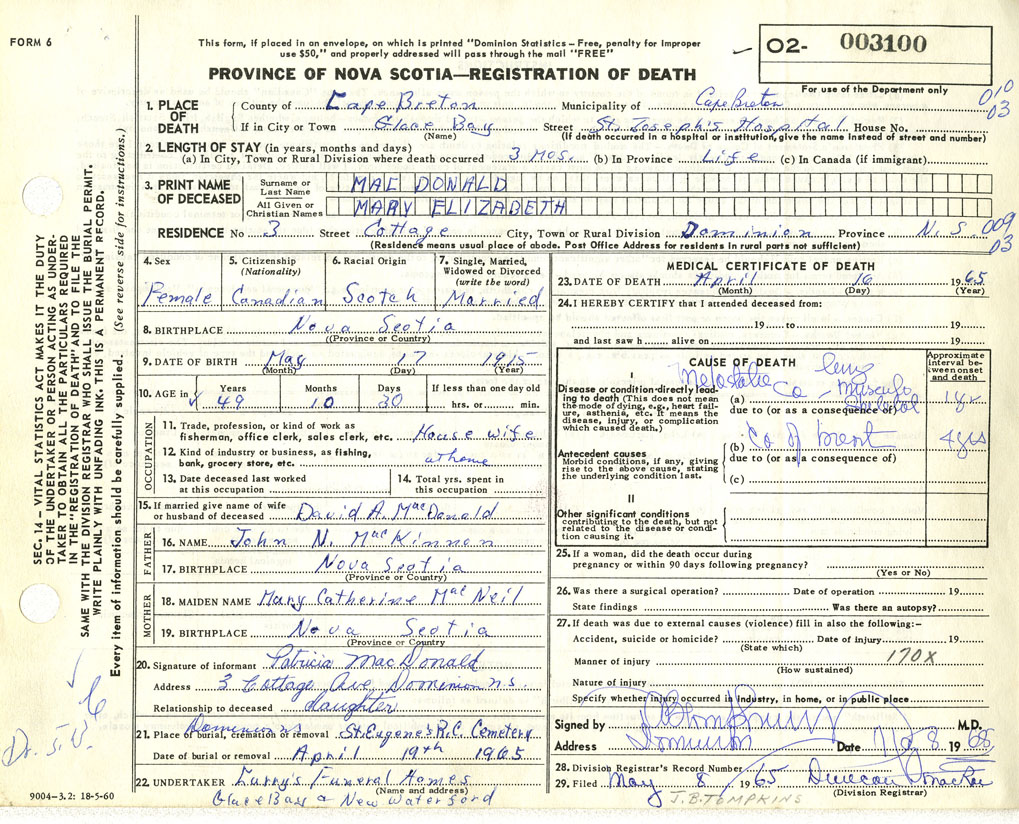 FORM 6
This form, if placed in an envelope, on which is printed "Dominion Statistics – Free, penalty for improper
use $50," and properly addressed will pass through the mail "FREE"
O2- 003100
For use of the Department only
PROVINCE OF NOVA SCOTIA—REGISTRATION OF DEATH
010
03
1. PLACE OF DEATH
County of Cape Breton Municipality of Cape Breton
If in City or Town Glace Bay Street St. Joseph's Hospital House No.
(Name) (If death occurred in a hospital or institution, give the name instead of street and number)
2. LENGTH OF STAY (in years, months and days)
(a) In City, Town or Rural Division where death occurred 3 mos. (b) In Province Life (c) In Canada (if immigrant)
3. PRINT NAME OF DECEASED
Surname or Last Name MAC DONALD
All Given or Christian Names MARY ELIZABETH
RESIDENCE No 3 Street Cottage City, Town or Rural Division Dominion Province N.S.
009
03
(Residence means usual place of abode. Post Office Address for residents in rural parts not sufficient)
4. Sex Female
5. Citizenship (Nationality) Canadian
6. Racial Origin Scotch
7. Single, Married, Widowed or Divorced (write the word) Married
8. BIRTHPLACE Nova Scotia
((Province or Country)
9. DATE OF BIRTH May 17 1915
(Month) (Day) (Year)
10. AGE in Years 49 Months 10 Days 30 If less than one day old hrs. or min.
OCCUPATION
11. Trade, profession, or kind of work as
fisherman, office clerk, sales clerk, etc. House wife
12. Kind of industry or business, as fishing,
bank, grocery store, etc. at home
13. Date deceased last worked
at this occupation
14. Total yrs. spent in
this occupation
15. If married give name of wife
or husband of deceased David A. MacDonald
FATHER
16. NAME John N. MacKinnon
17. BIRTHPLACE Nova Scotia
(Province or Country)
MOTHER
18. MAIDEN NAME Mary Catherine MacNeil
19. BIRTHPLACE Nova Scotia
(Province or Country)
20. Signature of informant Patricia MacDonald
Address 3 Cottage Ave, Dominion N.S.
Relationship to deceased daughter
21. Place of burial, cremation or removal Dominion N.S. St. Eugene's R.C. Cemetery
Date of burial or removal April 19th 1965
22. UNDERTAKER Curry's Funeral Homes
(Name and address)
Glace Bay & New Waterford
9004-3.2: 18-5-60
MEDICAL CERTIFICATE OF DEATH
23. DATE OF DEATH April 16 1965
(Month) (Day) (Year)
24. I HEREBY CERTIFY that I attended deceased from:
19 to 19
and last saw h alive on 19
CAUSE OF DEATH
Approximate interval between onset and death
I
Disease or condition directly leading to death (This does not mean the mode of dying, e.g., heart failure, asthenia, etc. It means the disease, injury, or complication which caused death.)
(a) Metastatic Ca – lung musculo skeletal 1 yr
due to (or as a consequence of)
(b) Ca of breast 4 yrs
due to (or as a consequence of)
(c)
Antecedent causes
Morbid conditions, if any, giving rise to the above cause, stating the underlying condition last.
II
Other significant conditions
contributing to the death, but not related to the disease or condition causing it.
25. If a woman, did the death occur during
pregnancy or within 90 days following pregnancy?
(Yes or No)
26. Was there a surgical operation? Date of operation 19
State findings Was there an autopsy?
27. If death was due to external causes (violence) fill in also the following:-
Accident, suicide or homicide? Date of injury 19
(State which)
Manner of injury 170X
(How sustained)
Nature of injury
Specify whether injury occurred in industry, in home, or in public place
Signed by M.D.
Address Dominion Date 8 1965
28. Division Registrar's Record Number
29. Filed May 8 1965 Duncan
(Division Registrar)
J.B. TOMPKINS
SEC. 14 – VITAL STATISTICS ACT MAKES IT THE DUTY
OF THE UNDERTAKER OR PERSON ACTING AS UNDER-
TAKER TO OBTAIN ALL THE PARTICULARS REQUIRED
IN THE "REGISTRATION OF DEATH" AND TO FILE THE
SAME WITH THE DIVISION REGISTRAR WHO SHALL ISSUE THE BURIAL PERMIT.
WRITE PLAINLY WITH UNFADING INK. THIS IS A PERMANENT RECORD.
Every item of information should be carefully supplied. (See reverse side for instructions.)